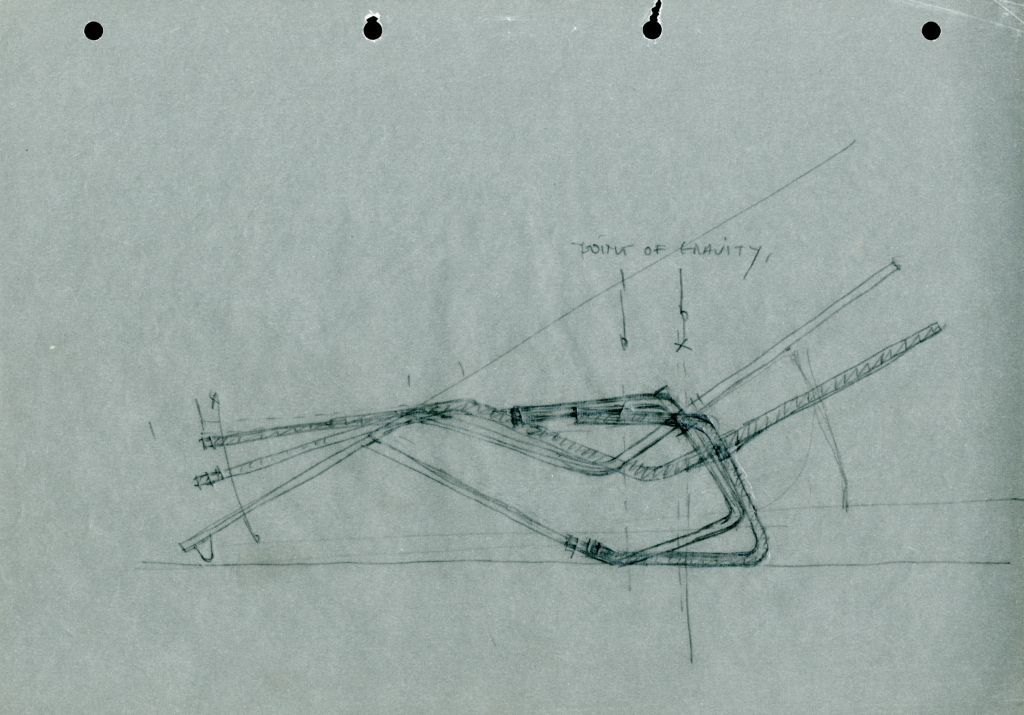 POINT OF GRAVITY,